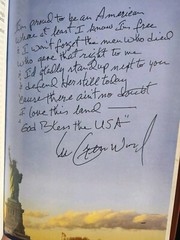 I'm proud to be an American
where at least I know I'm free
& I won't forget the men who died
who gave that right to me
& I'd gladly stand up next to you
& defend Her still today
Cause there ain't no doubt
I love this land —
"God Bless the USA"